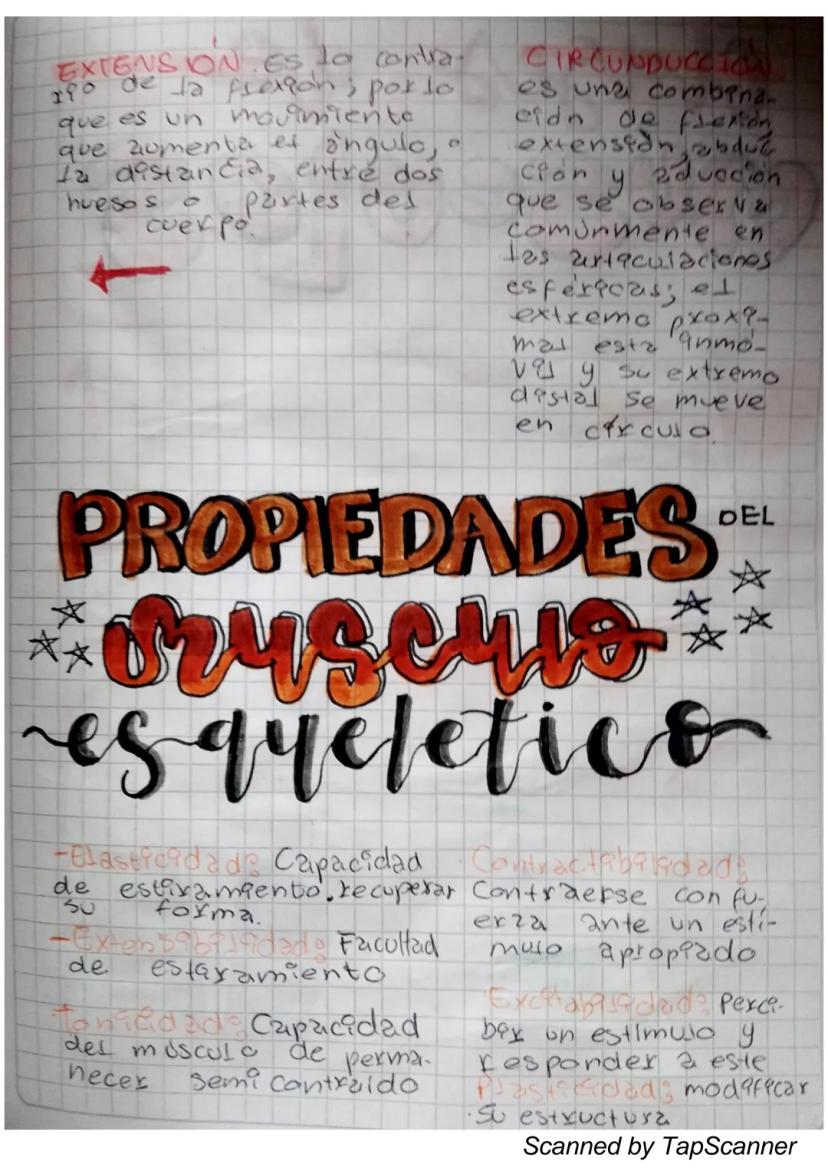 EXTENSIÓN. Es lo contra-
rio de la flexión; por lo
que es un movimiento
que aumenta el ángulo, o
la distancia, entre dos
huesos o partes del
cuerpo.
CIRCUNDUCCIÓN
es una combina-
ción de flexión,
extensión, abduc
ción y aducción
que se observa
comúnmente en
las articulaciones
esféricas; el
extremo proxi-
mal esta inmó-
vil y su extremo
distal se mueve
en círculo.
PROPIEDADES DEL
musculo
esqueletico
-Elasticidad: Capacidad
de estiramiento. recuperar
su forma.
-Extensibilidad: Facultad
de estiramiento
Tonicidad: Capacidad
del músculo de perma-
necer semi contraido
Contractibilidad:
Contraerse con fu-
erza ante un estí-
mulo apropiado
Excitabilidad: Perci-
bir un estímulo y
responder a este
Plasticidad: modificar
su estructura
Scanned by TapScanner